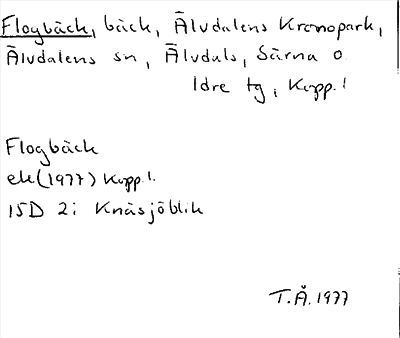 Flogbäck, bäck, Älvdalens Kronopark,
Älvdalens sn, Älvdals, Särna o
Idre tg, Kopp. l
Flogbäck
ek (1977) Kopp. l.
15D 2i Knäsjöblik
T.Å. 1977